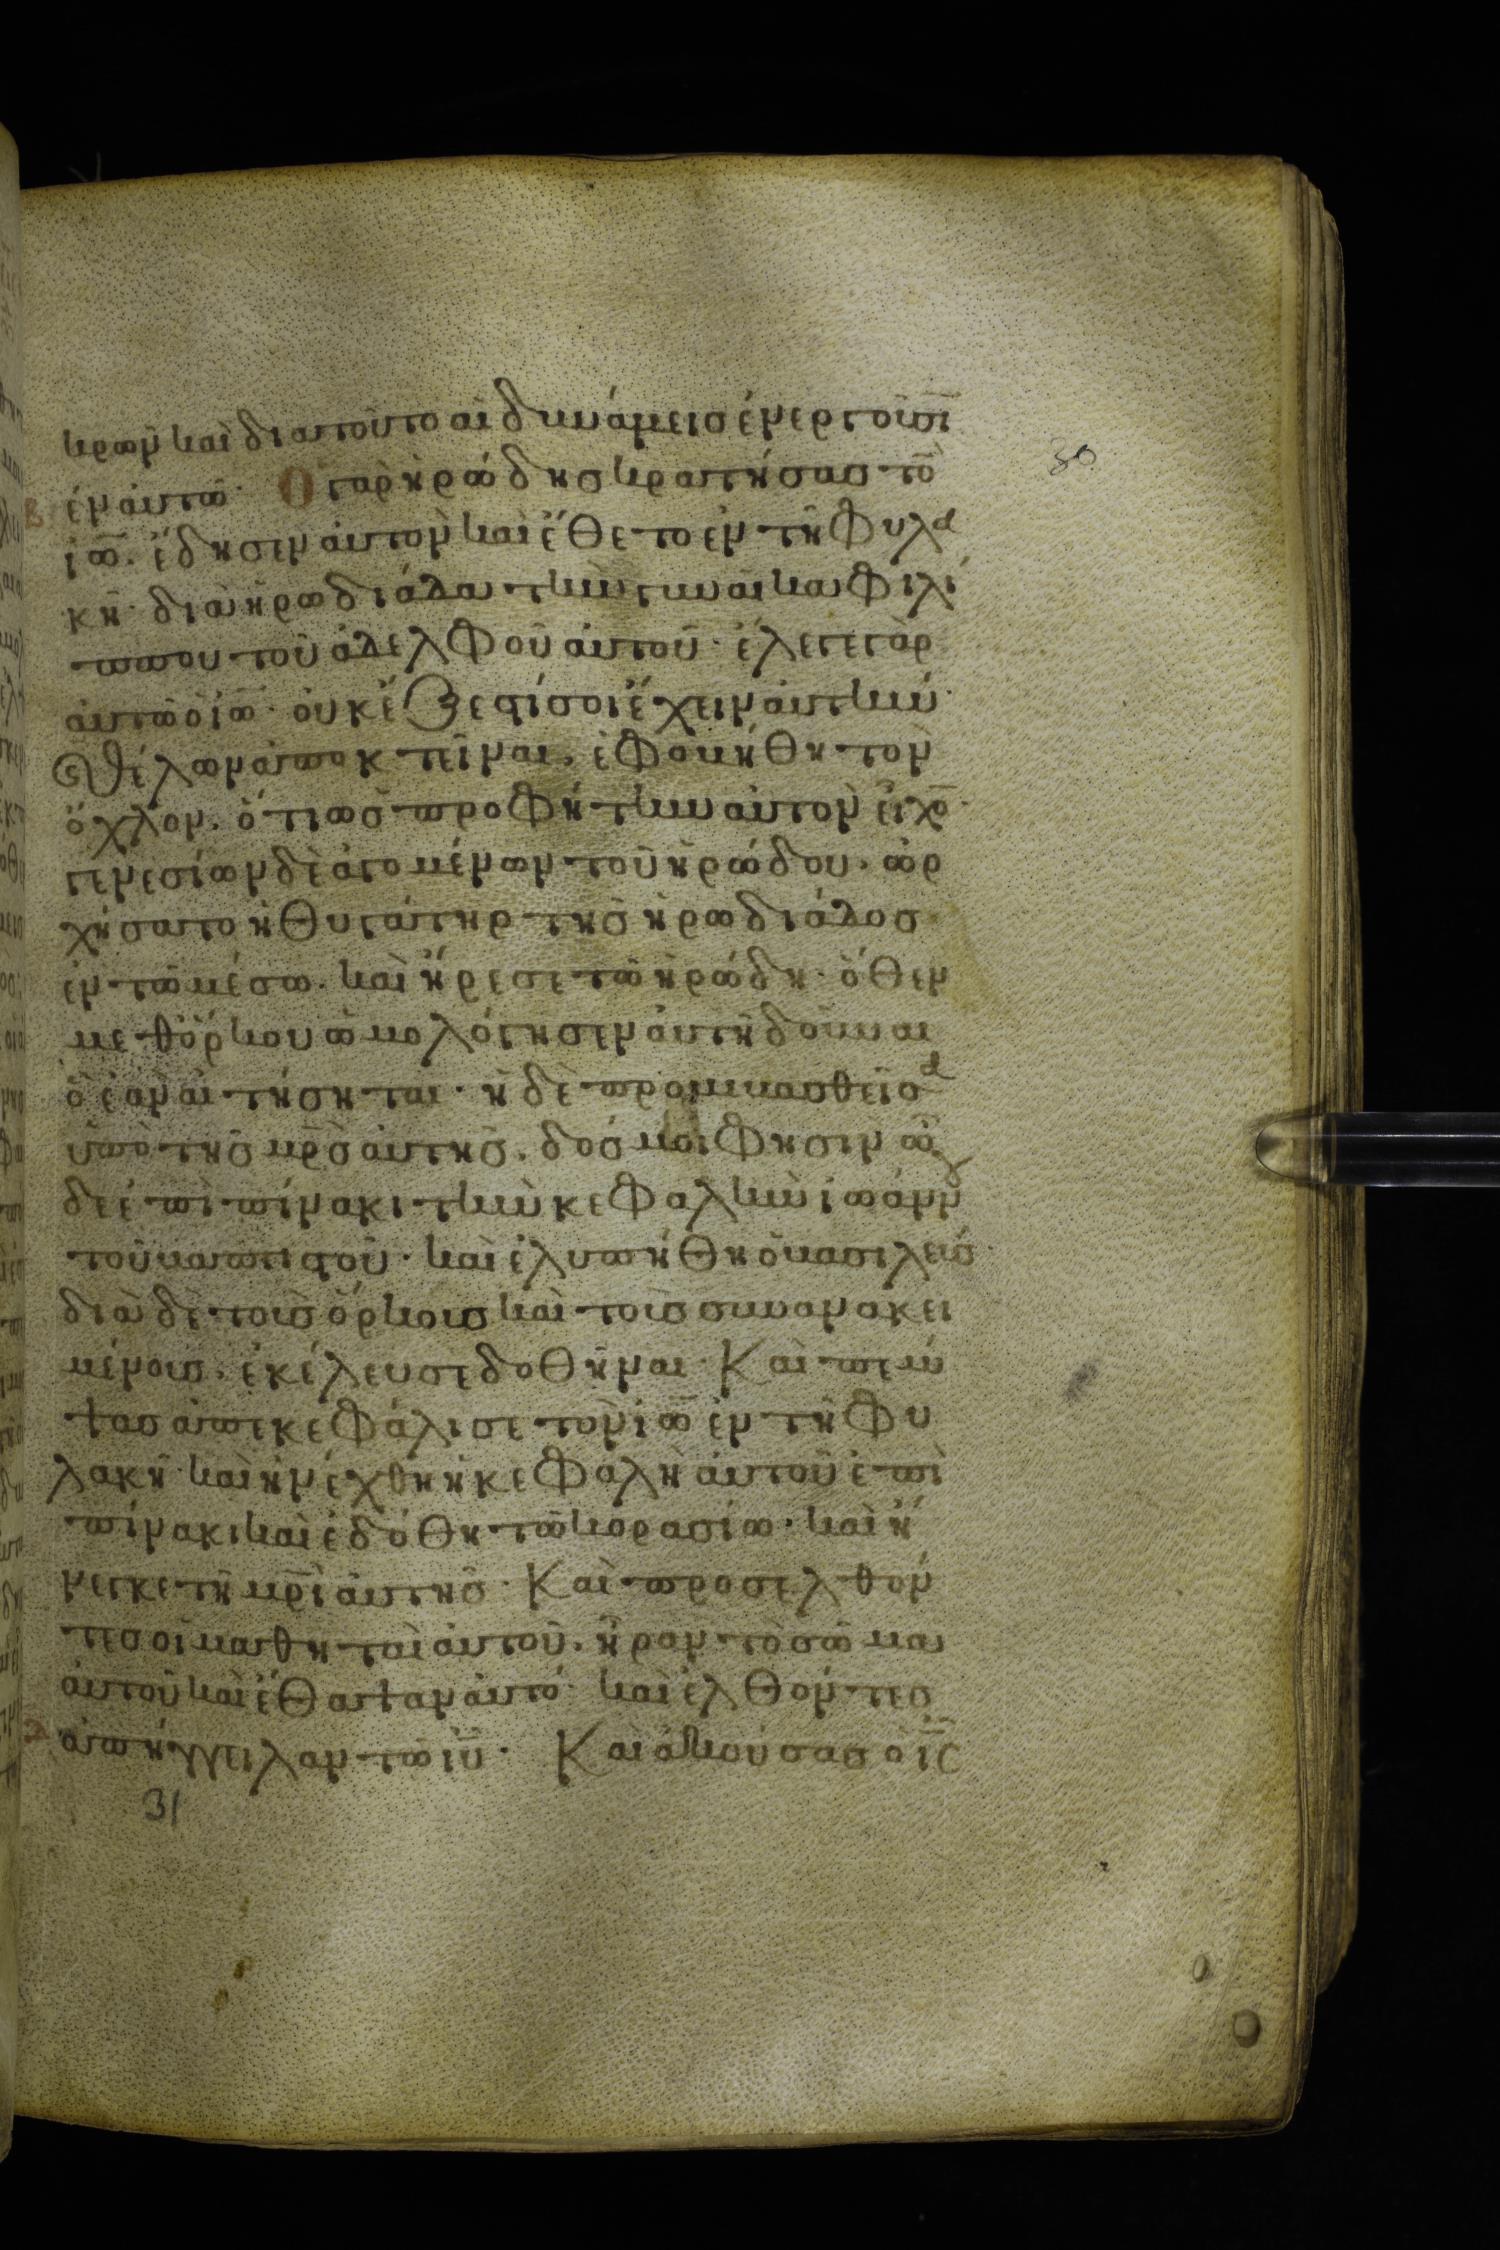 κρῶν καὶ διατοῦτο αἱ δυνάμεις ἐνεργοῦσῖ
30
β ἐν αὐτῶ· Ὁ γὰρ ἡρώδης κρατήσας τὸ̄
ἰω̄. ἔδησεν αὐτὸν καὶ ἔθετο ἐν τῆ φυλα
κῆ· διὰ ἡρωδιάδα τὴν γυναῖκα φιλί
ππου τοῦ ἀδελφοῦ αὐτοῦ· ἔλεγε γὰρ
αὐτῶ ὁ ἰω̄· οὐκ ἔξεστί σοι ἔχειν αὐτήν·
Θέλων ἀποκτεῖναι, ἐφοβήθη τὸν
ὄχλον, ὅτι ὡς προφήτην αὐτὸν εἶχο̄·
γενεσίων δὲ ἀγομένων τοῦ ἡρώδου, ὠρ
χήσατο ἡ θυγάτηρ τῆς ἡρωδιάδος
ἐν τῶ μέσω. καὶ ἤρεσε τῶ ἡρώδη· ὅθεν
μεθ' ὅρκου ὡμολόγησεν αὐτῆ δοῦναι
ὃ ἐὰν αἰτήσηται· ἡ δὲ προβιβασθεῖσα
ὑπὸ τῆς μρ̄ς αὐτῆς, δός μοι φησὶν ὧ
δε ἐπὶ πίνακι τὴν κεφαλὴν ἰωάννου
τοῦ βαπτιστοῦ· καὶ ἐλυπήθη ὁ βασιλεύς·
διὰ δὲ τοὺς ὅρκους καὶ τοὺς συνανακει
μένους, ἐκέλευσε δοθῆναι· Καὶ πέμ
ψας ἀπεκεφάλισε τὸν ἰω̄ ἐν τῆ φυ
λακῆ· καὶ ἠνέχθη ἡ κεφαλὴ αὐτοῦ ἐπὶ
πίνακι καὶ ἐδόθη τῶ κορασίω· καὶ ἤ
νεγκε τῆ μρ̄ὶ αὐτῆς· Καὶ προσελθόν
τες οἱ μαθηταὶ αὐτοῦ, ἦραν τὸ σῶμα
αὐτοῦ καὶ ἔθαψαν αὐτό· καὶ ἐλθόντες
ἀπήγγειλαν τῶ ιῡ· Καὶ ἀκούσας ὁ ις̄
31